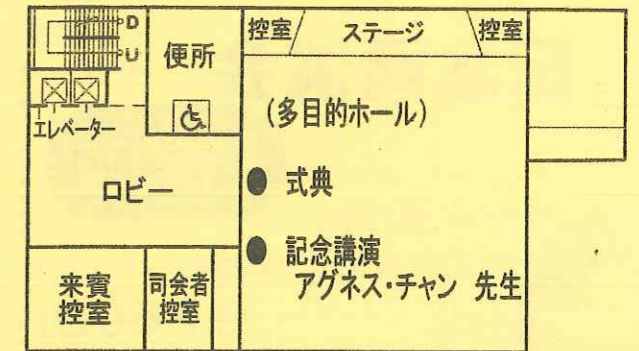 D
U
便所
控室
ステージ
控室
エレベーター
(多目的ホール)
ロビー
● 式典
● 記念講演
アグネス・チャン 先生
来賓
控室
司会者
控室